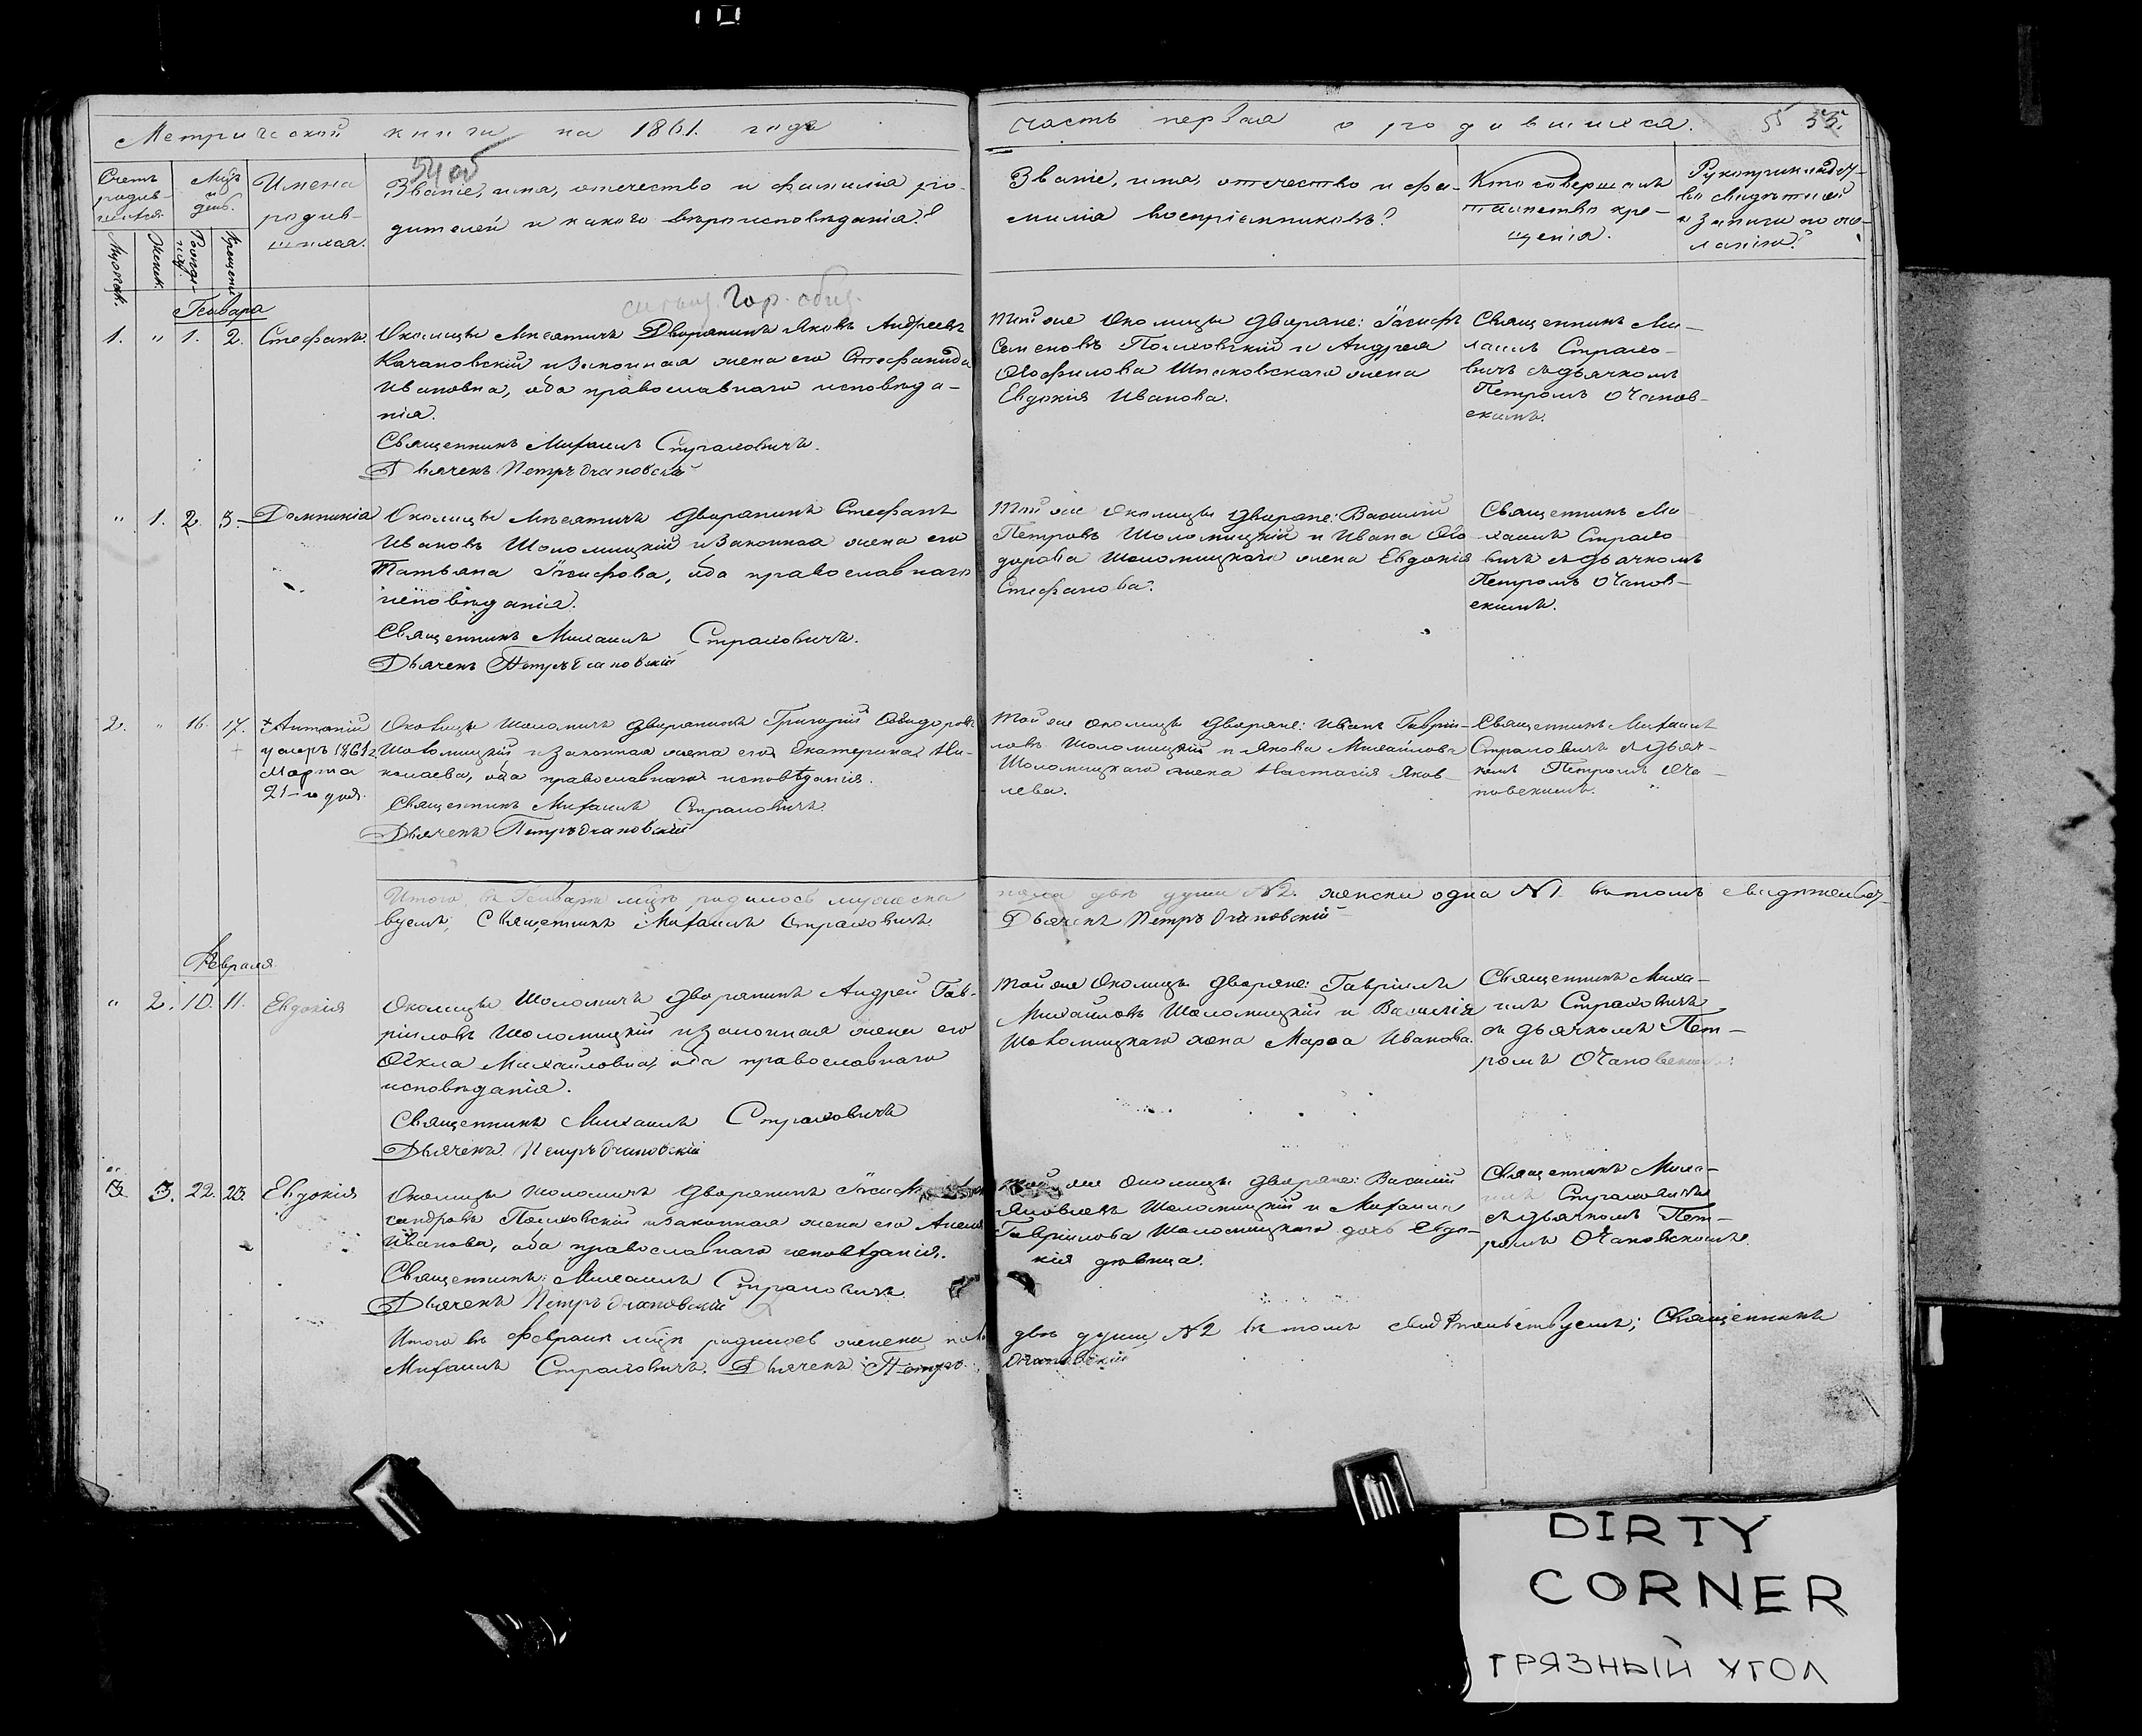 Метрической книги на 1861. года
часть первая о родившихся. 55 55.
54 об
Счетъ родив-шихся.
Муж.
Женск.
Мцъ и день.
Рожде-нія
Крещенія
Имена родив-шихся.
Званіе, имя, отечество и фамилія ро-
дителей и какого вѣроисповѣданія?
Званіе, имя, отечество и фа-
милія воспріемниковъ?
Кто совершалъ
таинство кре-
щенія.
Рукоприкладст-
во свидѣтелей
о записи по же-
ланію?
Генваря
Гор. общ.
1. " 1. 2. Стефанъ.
Околицы Мнсятичъ Дворянинъ Яковъ Андреевъ
Качановскій и законная жена его Стефанида
Ивановна, оба православнаго исповѣда-
нія.
Священникъ Михаилъ Страховичъ.
Дьячекъ Петръ Очановскій
Той же Околицы дворяне: Іосифъ
Семеновъ Полховскій и Андрея
Ивана
Евдокія Иванова.
Священникъ Ми-
хаилъ Страхо-
вичъ съ дьячкомъ
Петромъ Очанов-
скимъ.
" 1. 2. 3. Домникія
Околицы Мнсятичъ дворянинъ Стефанъ
Ивановъ Шоломицкій и законная жена его
Татьяна Іосифова, оба православнаго
исповѣданія.
Священникъ Михаилъ Страховичъ.
Дьячекъ Петръ Очановскій
Той же Околицы дворяне: Василій
Петровъ Шоломицкій и Ивана Ѳео
дорова Шоломицкаго жена Евдокія
Стефанова.
Священникъ Ми
хаилъ Страхо
вичъ съ дьячкомъ
Петромъ Очанов-
скимъ.
2. " 16. 17. + Антоній
умеръ 1861 г.
Марта
21-го дня.
Околицы Шоломичъ дворянинъ Григорій
Шоломицкій и законная жена его Екатерина Ни-
колаева, оба православнаго исповѣданія.
Священникъ Михаилъ Страховичъ
Дьячекъ Петръ Очановскій
Той же околицы дворяне: Иванъ Гаврии-
ловъ Шоломицкій и Якова Михайлова
Шоломицкаго жена Настасія Яков-
лева.
Священникъ Михаилъ
Страховичъ съ дьяч-
комъ Петромъ Оча-
новскимъ.
Итого въ Генварѣ мцѣ родилось мужеска
пола двѣ души №2. женска одна №1. въ томъ свидѣтельст-
вуемъ; Священникъ Михаилъ Страховичъ.
Дьячекъ Петръ Очановскій
Февраля
" 2. 10. 11. Евдокія
Околицы Шоломичъ дворянинъ Андрей Гав-
ріиловъ Шоломицкій и законная жена его
Ѳекла Михайловна, оба православнаго
исповѣданія.
Священникъ Михаилъ Страховичъ
Дьячекъ Петръ Очановскій
Той же Околицы дворяне: Гавріилъ
Михаиловъ Шоломицкій и Василія
Шоломицкаго жена Марѳа Иванова.
Священникъ Миха-
илъ Страховичъ
съ дьячкомъ Пет-
ромъ Очановскимъ.
3. 22. 23. Евдокія
Околицы Шоломичъ дворянинъ Іосифъ
сандровъ Полховскій и законная жена его
Иванова, оба православнаго исповѣданія.
Священникъ Михаилъ Страховичъ.
Дьячекъ Петръ Очановскій
Той же Околицы дворяне: Василій
Яковлевъ Шоломицкій и Михаила
Гавріилова Шоломицкаго дочь Евдо-
кія дѣвица.
Священникъ Миха-
илъ Страховичъ
съ дьячкомъ Пет-
ромъ Очановскимъ.
Итого въ Февралѣ мцѣ родилось женска пола
двѣ души №2 въ томъ свидѣтельствуемъ; Священникъ
Михаилъ Страховичъ. Дьячекъ Петръ
Очановскій
DIRTY
CORNER
ГРЯЗНЫЙ УГОЛ